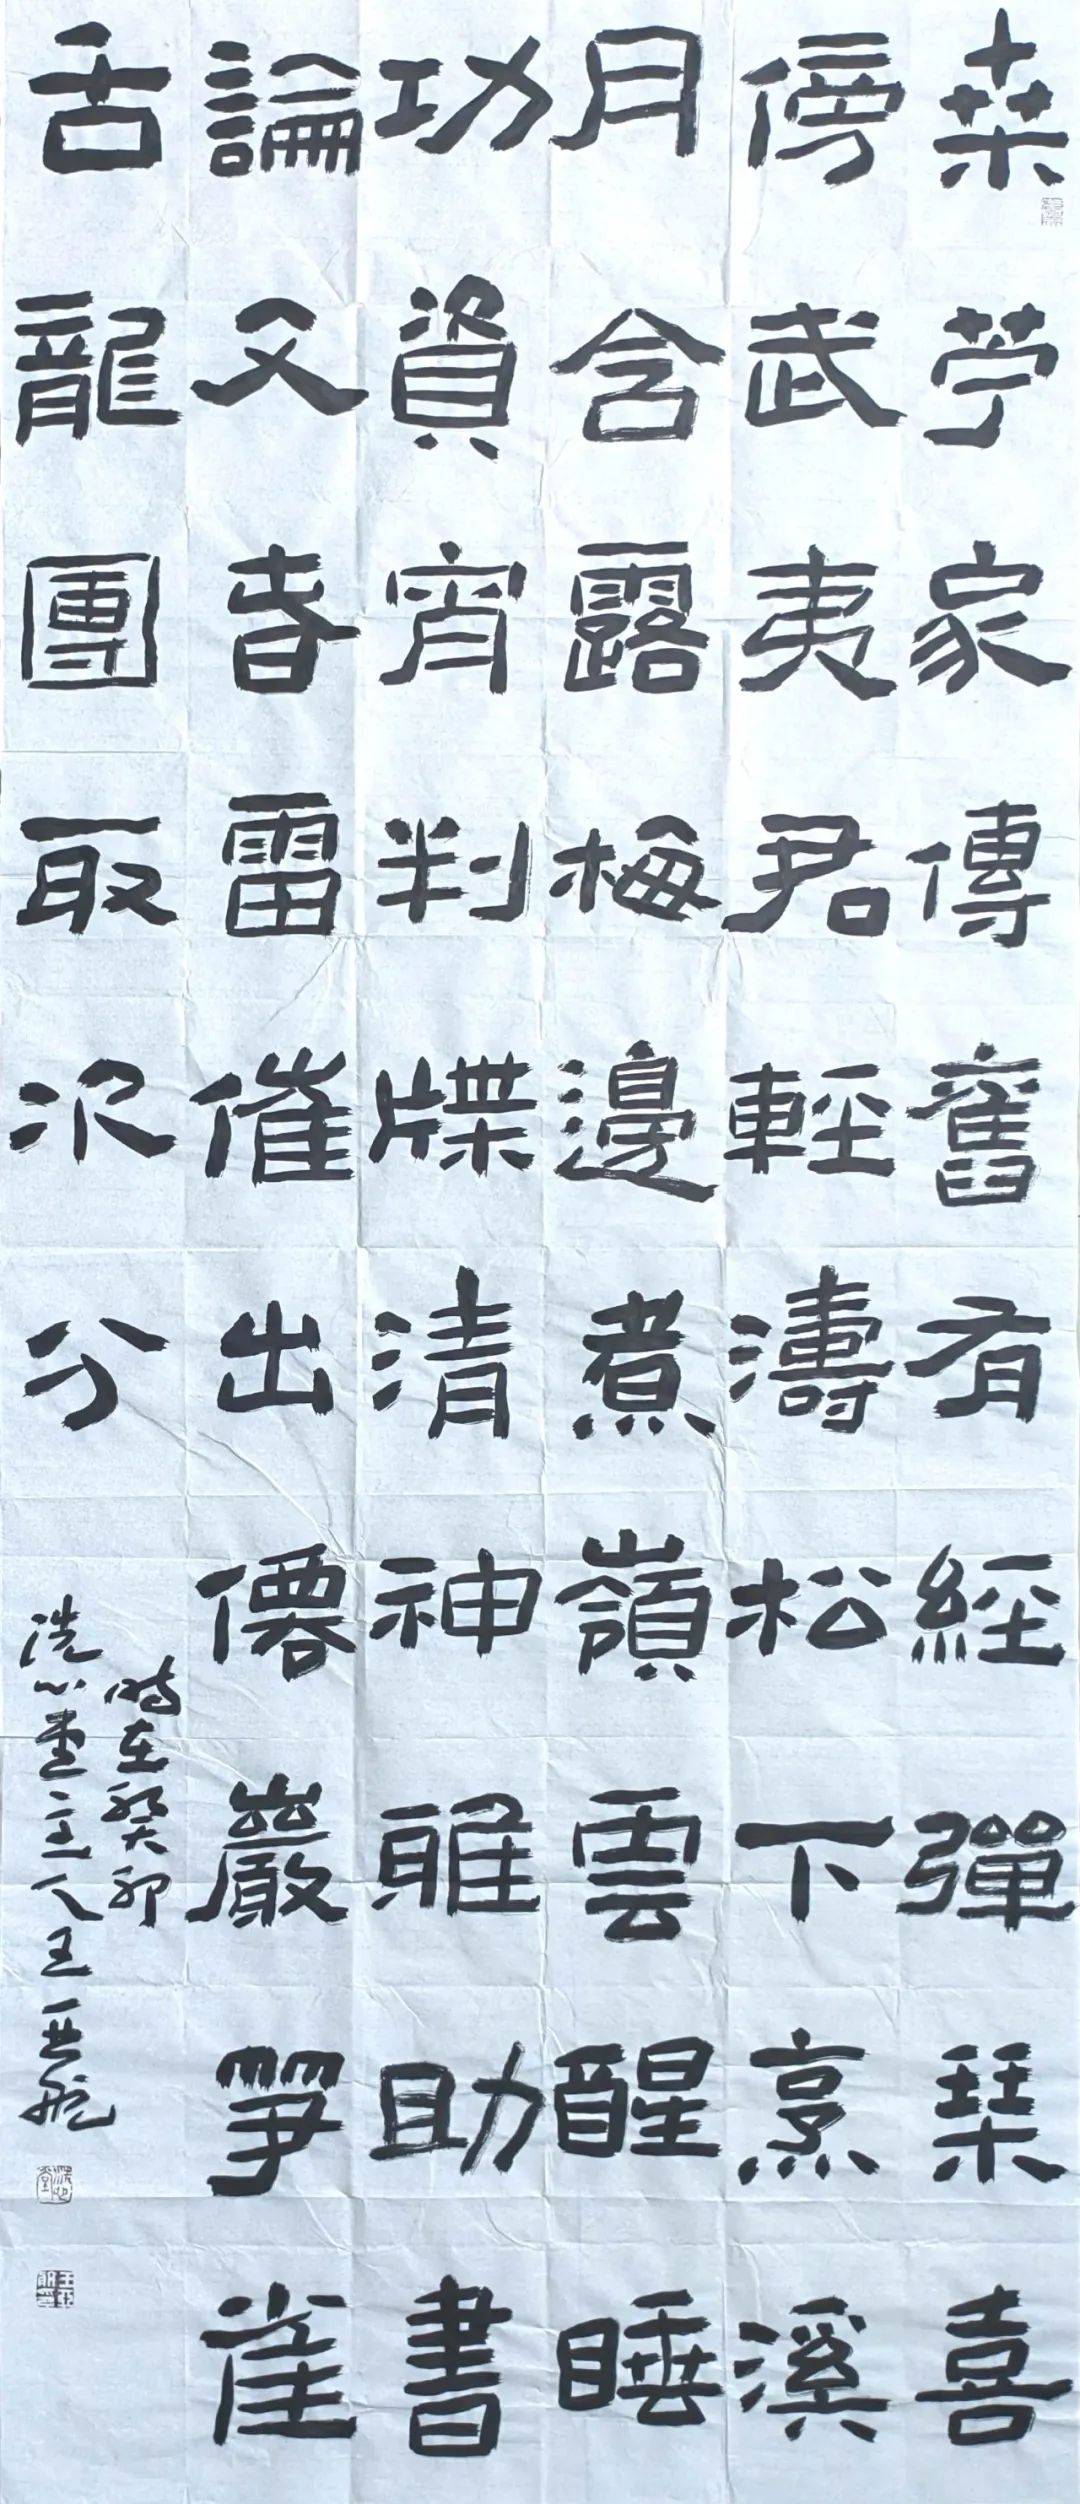 桒苧家傳舊有經彈琹喜
傍武夷君輕濤松下烹溪
月含露梅邊煮嶺雲醒睡
功資宵判牒清神雅助書
論文春雷催出僊巖笋雀
舌龍團取次分
時在癸卯
洗心堂主人王亞
洗心堂